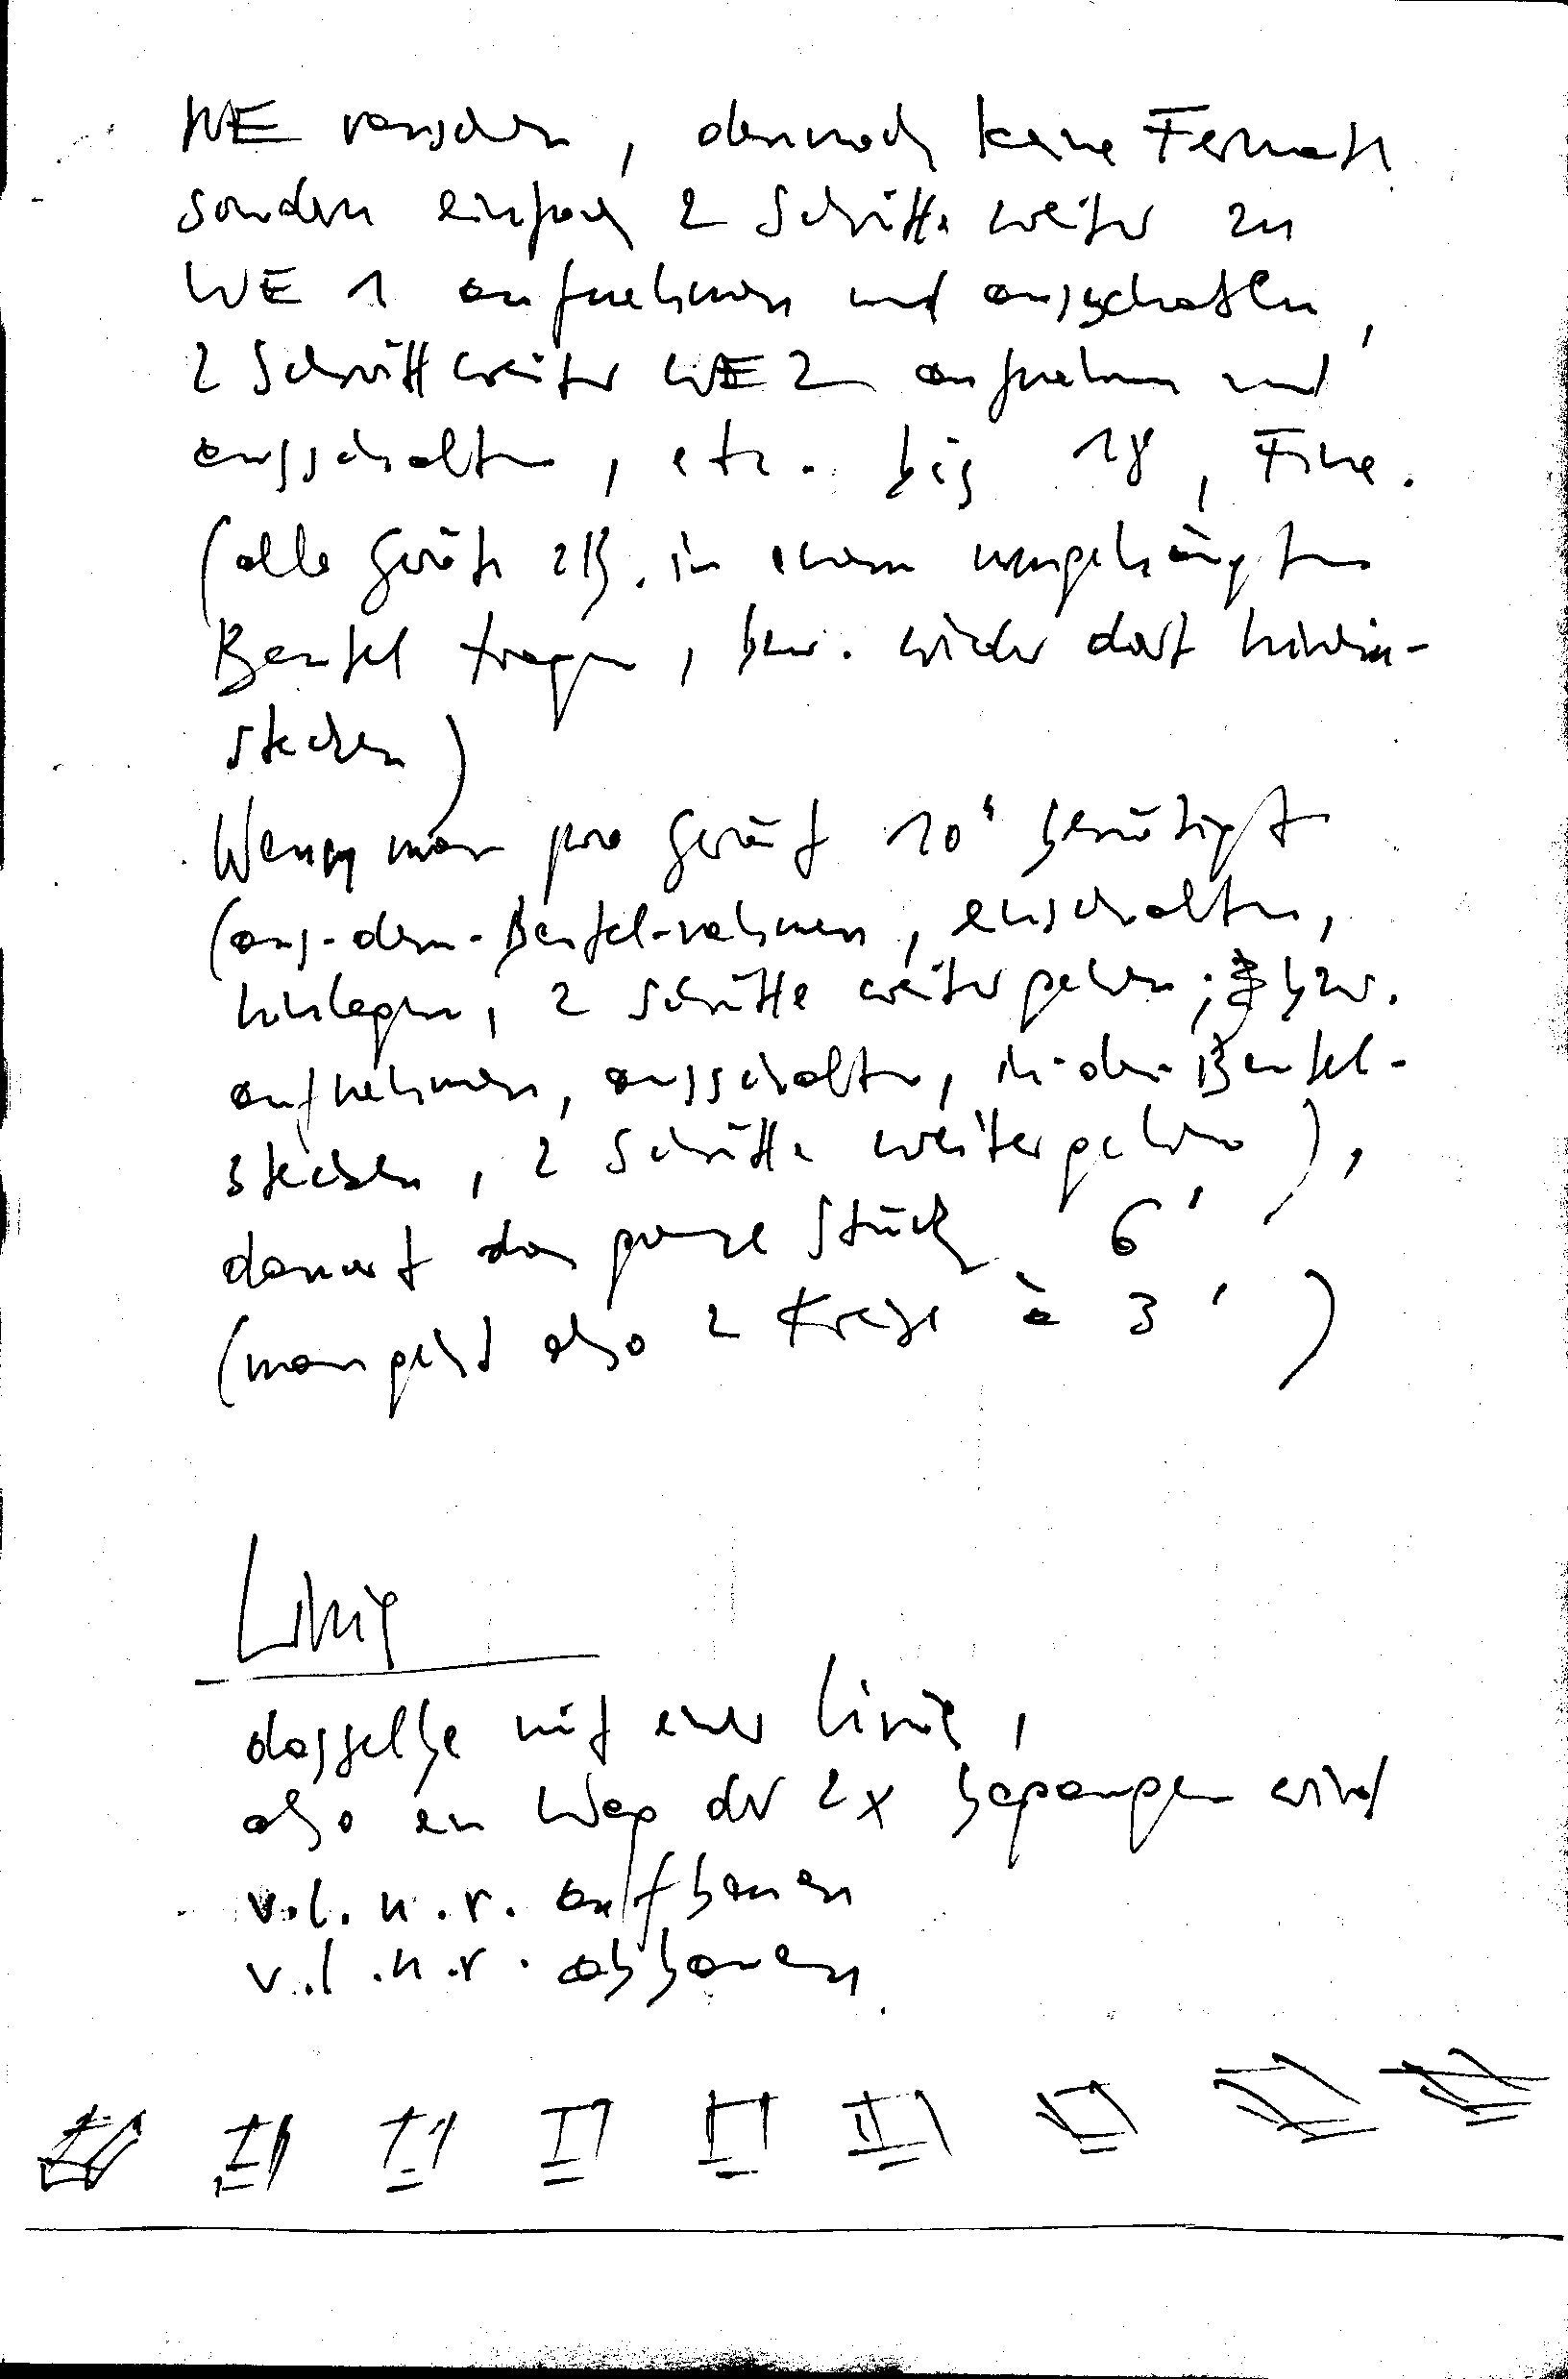 WE rauschen, dennoch keine Fermate
sondern einfach 2 Schritte weiter zu
WE 1 aufnehmen und ausschalten,
2 Schritt weiter WE 2 aufnehmen und
ausschalten, etc. bis 18, Fine.
(alle Geräte zB. in einem umgehängten
Beutel tragen, bzw. wieder dort hinein-
stecken)
Wenn man pro Gerät 10" benötigt
(aus-dem-Beutel-nehmen, einschalten,
hinlegen, 2 Schritte weitergehen; bzw.
aufnehmen, ausschalten, in-den-Beutel-
stecken, 2 Schritte weitergehen),
dauert das ganze Stück 6'
(man geht also 2 Kreise à 3')
Linie
dasselbe mit einer Linie,
also ein Weg der 2x gegangen wird
v.l.n.r. aufbauen
v.l.n.r. abbauen